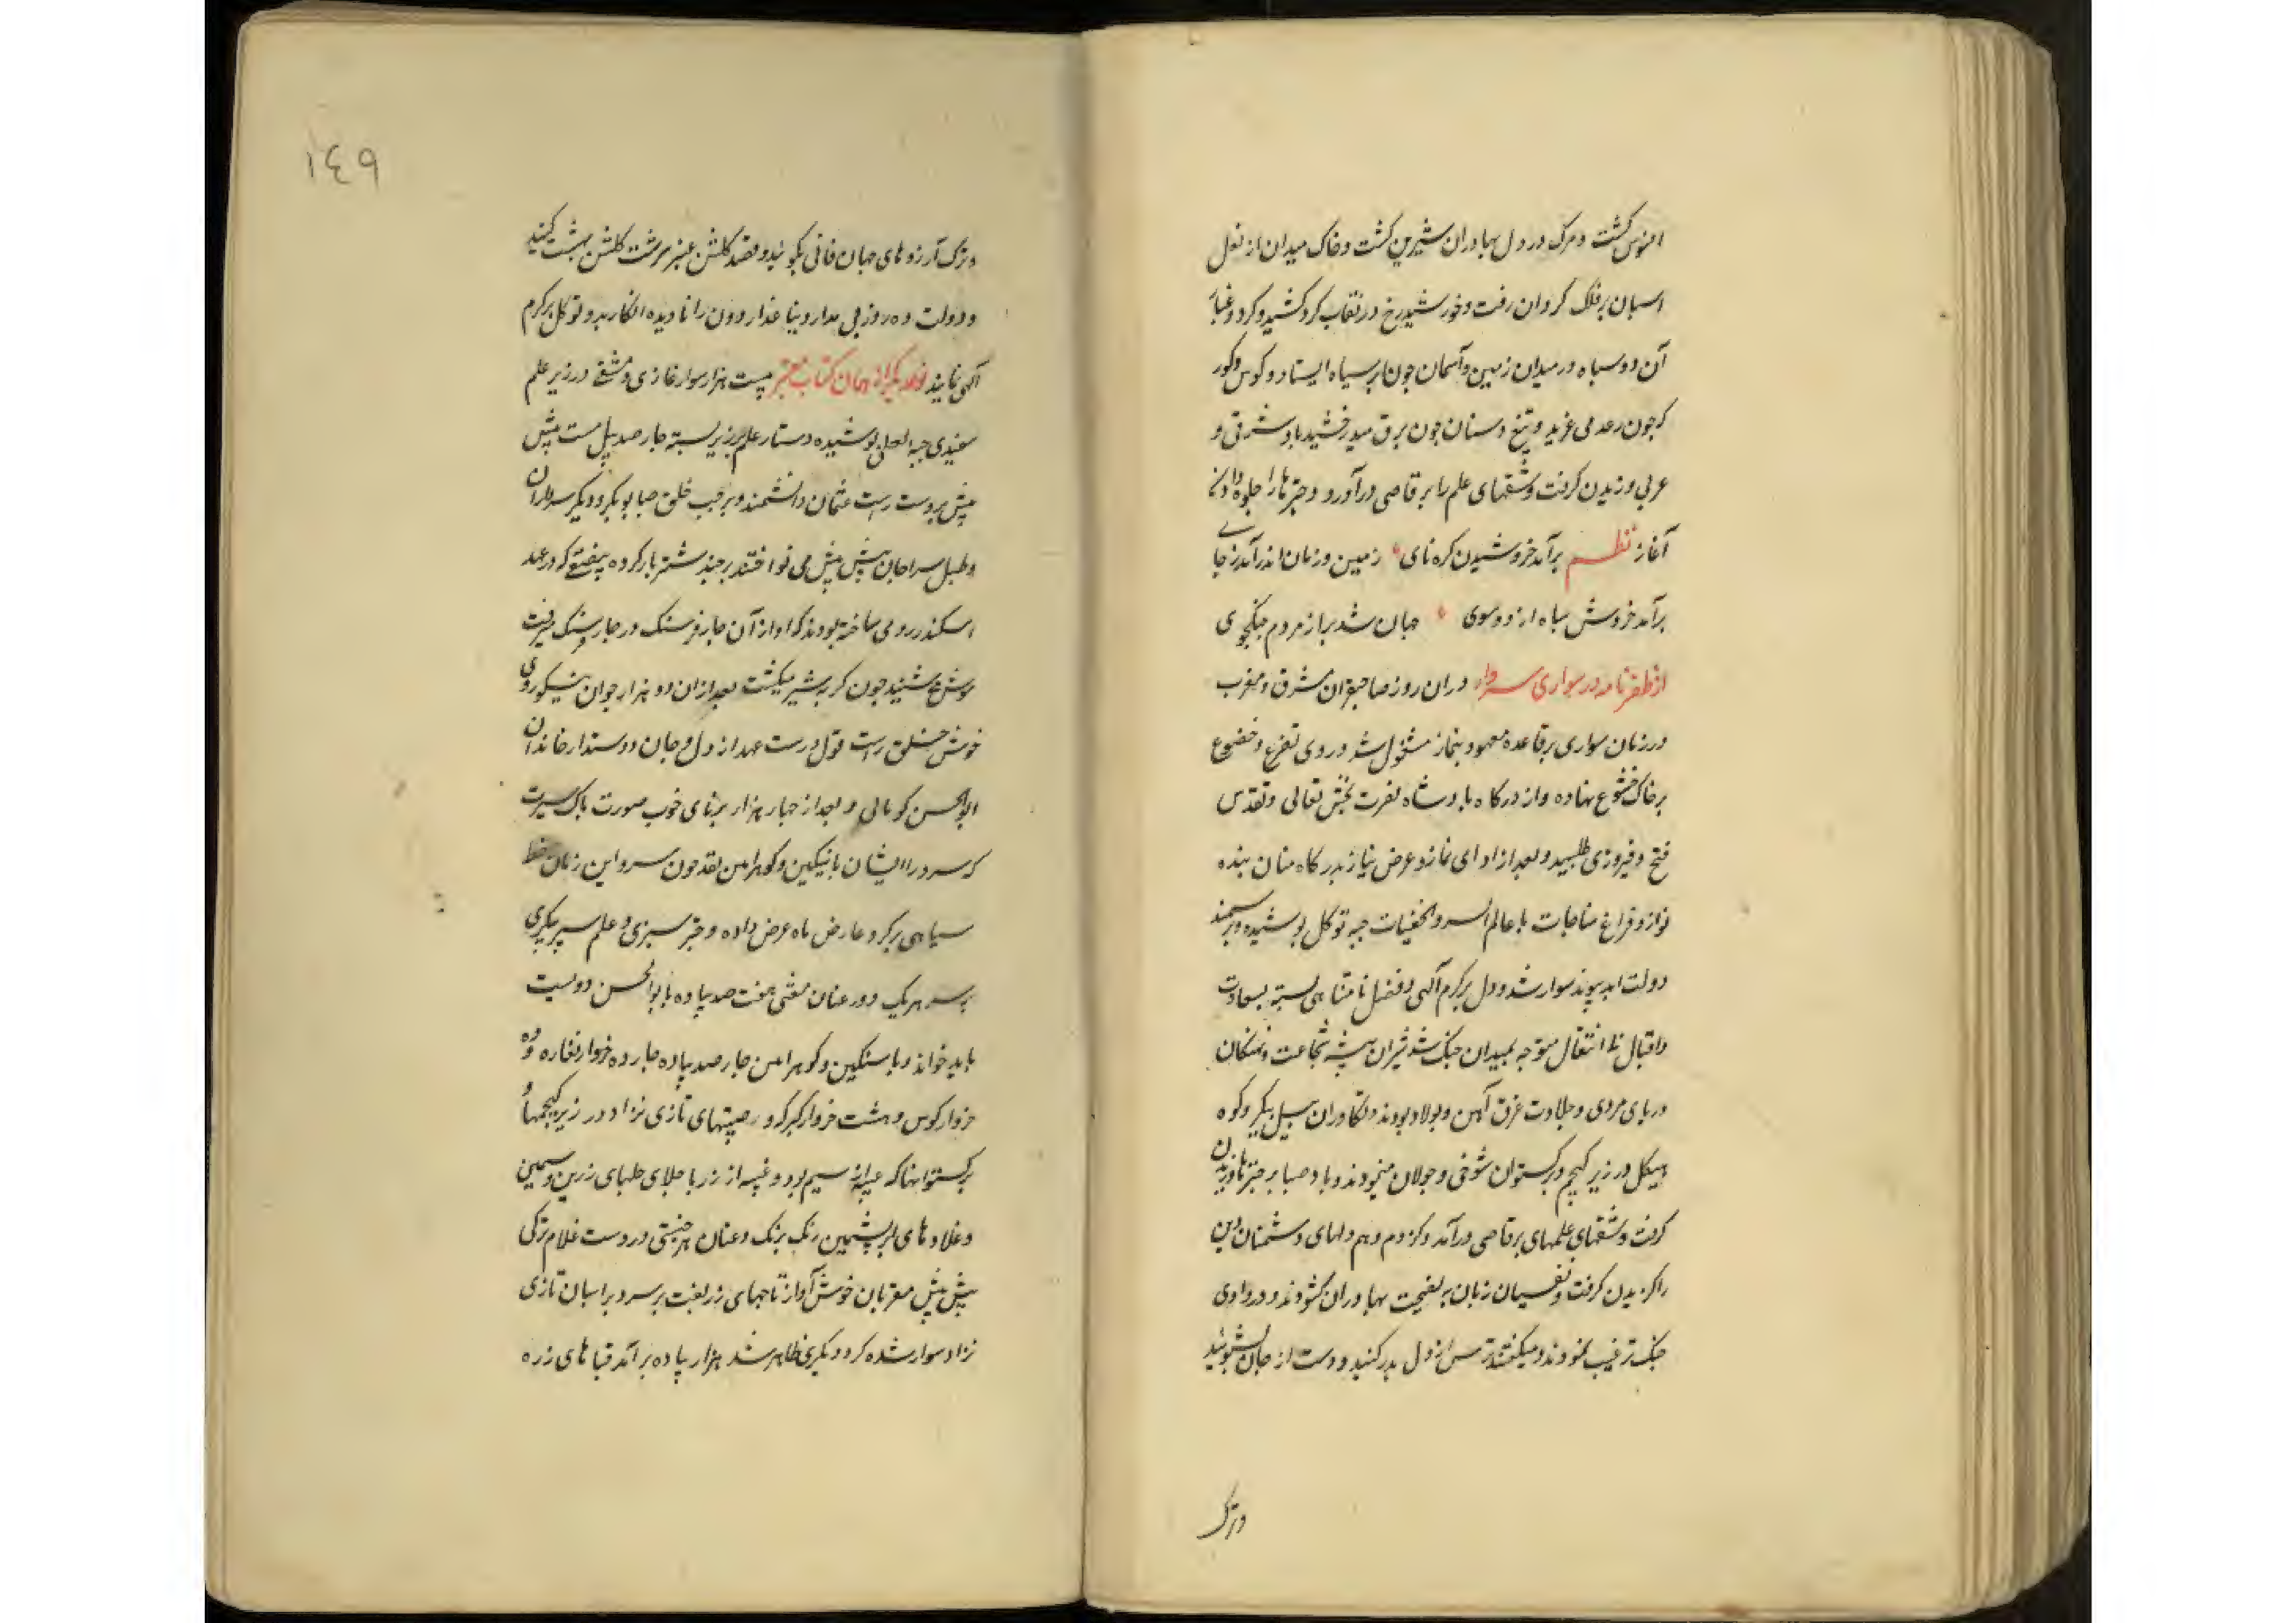 افسوس کشت و مرک در دل بهادران شیرین کشت و خاک میدان از نعل
اسبان بر فلک کردان رفت و خورشید رخ در نقاب کرد کشید و کرد و غبار
آن دو سباه در میدان زمین و آسمان چون ابر سیاه ایستاد و کوس و کور
که چون رعد می غرید و تیغ و سنان چون برق میدرخشید باد شرقی و
عربی وزیدن کرفت و شقهای علم را برقاصی در آورد و چترها را جلوه دادن
آغاز نظم برآمد خروشیدن کره نای زمین و زمان اندر آمد ز جای
برآمد خروش سباه از دو سوی جهان شد بر از مردم جنکجوی
از ظفرنامه در سواری سردار در ان روز صاحبقران مشرق و مغرب
در زمان سواری بر قاعده معهود بنماز مشغول شد و روی تضرع و خضوع
بر خاک خشوع نهاده و از درکاه بادشاه نصرت بخش تعالی و تقدس
فتح و فیروزی طلبید و بعد از ادای نماز و عرض نیاز بدرکاه منان بنده
نواز و فراغ مناجات با عالم السر و الخفیات جبه توکل بوشیده و بر سمند
دولت ابد پیوند سوار شد و دل بر کرم آلهی و فضل نامتناهی بسته بسعادت
و اقبال بی انتقال متوجه بمیدان جنک شد شیران بیشه شجاعت و نهنکان
دریای مردی و جلادت غرق آهن و بولاد بودند و تکاوران سیل پیکر و کوه
هیکل در زیر کیجم و برکستوان شوخی و جولان مینمودند و باد صبا بر چترها وزیدن
کرفت و شقهای علمهای برقاصی در آمد و کژدم وهم دلهای دشمنان دین
را کزیدن کرفت و نفسیان زبان بر نصیحت بهادران کشودند و در وادی
جنک ترغیب نمودند و میکفتند ترس از دل بدر کنید و دست از جان بشوئید
وترک
١٤٩
و ترک آرزوهای جهان فانی بکوئید و قصد کلشن عنبر سرشت کلشن بهشت کنید
و دولت ده روز بی مدار دنیا غدار دون را نادیده انکارید و توکل بر کرم
آلهی نمایند نوعدیکر از همان کتاب معتبر بیست هزار سوار غازی و متقی در زیر علم
سفیدی جبه لعلی بوشیده دستار علم بر زیر بسته چار صد پیل مست پیش
پیش بر دست راست عثمان دانشمند و بر چب خلق صبا بوبکر و دیکر سرداران
و طبل سراجان پیش پیش می نواختند بر چند شتر بار کرده که در عهد
اسکندر رومی ساخته بودند که آواز آن چار فرسنک در چار فرسنک میرفت
شنید چون کر به شیر میکشت بعد از ان دو هزار جوان نیکوروی
خوش خلق راست قول درست عهد از دل و جان دوستدار خاندان
ابوالحسن کوبالی و بعد از چهار هزار برنای خوب صورت باک سیرت
که سردار ایشان باتیکین و کوهرامن بقد چون سرو این زمان خط
سیاهی بر کرد عارض ماه عرض داده و چتر سبزی و علم سپر پیکری
بر سر هر یک و در عنان مفتی هفت صد پیاده با بوالحسن دویست
باید خواند و با سنکین و کوهرامن چار صد پیاده چار ده خروار نغاره و ده
خروار کوس و هشت خروار کبرکه و جنیبتهای تازی نژاد در زیر کیجمها و
برکستوانها که عیبه از سیم بود و غبه از زر با جلای جلهای زرین و سیمین
و غلادهای ابریشمین رنک برنک و عنان هر جنیبتی در دست غلام ترکی
پیش پیش مقریان خوش آواز تاجهای زربفت بر سر و بر اسبان تازی
نژاد سوار شده کرد دیکری ظاهر شد هزار پیاده بر آمد قباهای زره